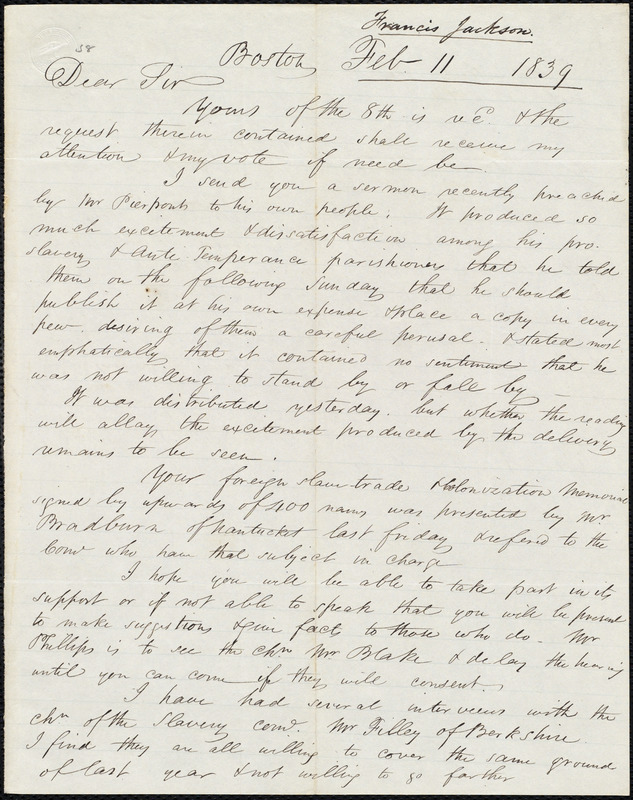 Francis Jackson.
38
Boston Feb 11 1839
Dear Sir
Yours of the 8th is rec. & the
request therein contained shall receive my
attention & my vote if need be.
I send you a sermon recently preached
by Mr Pierpont to his own people. It produced so
much excitement & dissatisfaction among his pro.
slavery & Anti Temperance parishioners that he told
them on the following Sunday that he should
publish it at his own expense & place a copy in every
pew. desiring of them a careful perusal. & stated most
emphatically that it contained no sentiment that he
was not willing to stand by or fall by —
It was distributed yesterday. but whether the reading
will allay the excitement produced by the delivery
remains to be seen.
Your foreign slave trade & Colonization Memorial
signed by upwards of 400 names was presented by Mr.
Bradburn of Nantucket last friday & refered to the
Comee who have that subject in charge
I hope you will be able to take part in its
support or if not able to speak that you will be present
to make suggestions & give facts to those who do. Mr
Phillips is to see the chn Mr Blake & delay the hearing
until you can come if they will consent.
I have had several interviews with the
chn of the Slavery Come. Mr Filley of Berkshire
I find they are all willing to cover the same ground
of last year & not willing to go farther